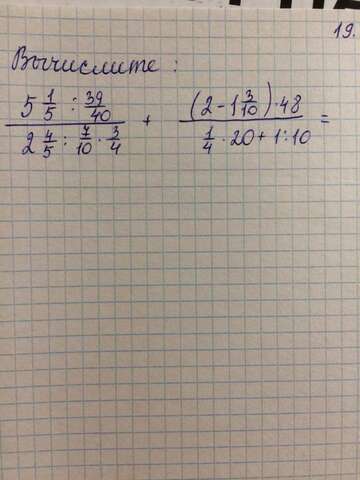 19.
Вычислите:
5 1/5 : 39/40 / 2 4/5 : 7/10 · 3/4 + (2 - 1 3/10) · 48 / 1/4 · 20 + 1 : 10 =